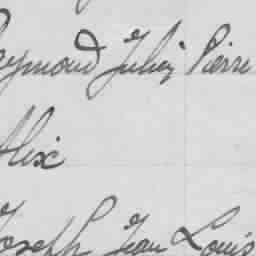 Raymond Julien Pierre
Alix
Joseph Jean Louis